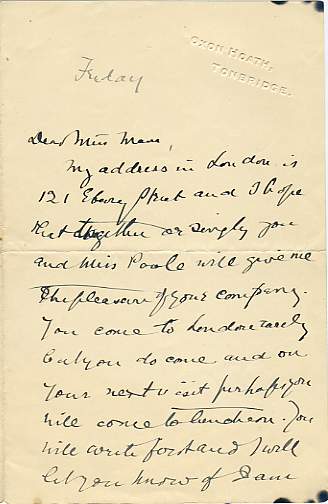 OXON HOATH,
TONBRIDGE.
Friday
Dear Miss Maus,
My address in London is
121 Ebury Street and I hope
that together or singly you
and Miss Poole will give me
the pleasure of your company.
You come to London rarely
but you do come and on
your next visit perhaps you
will come to luncheon. You
will write first and I will
let you know if I am